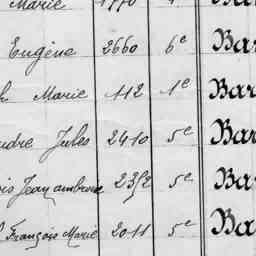 Marie 1770 Ba
Eugène 2660 6e Bar
Marie 112 1e Bar
Jules 2410 5e Bar
Jean 2352 5e Bar
François Marie 2011 5e Ba